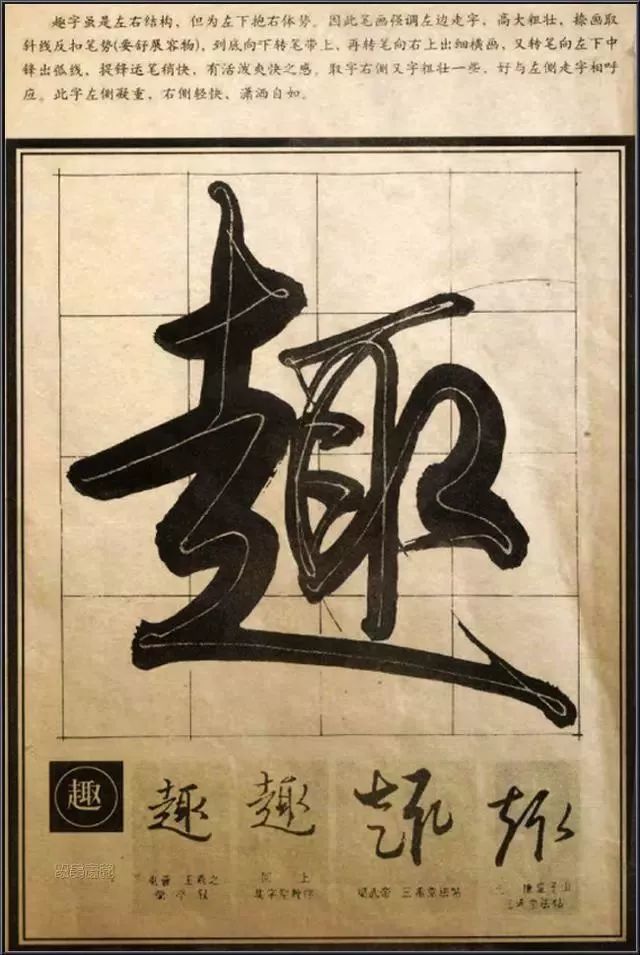 趣字虽是左右结构、但为左下抱右体势。因此笔画强调左边走字，高大粗壮，捺画取
斜线反扣笔势(要舒展容物)，到底向下转笔带上、再转笔向右上出细横画，又转笔向左下中
锋出弧线，提锋运笔稍快，有活泼爽快之感。取字右侧又字粗壮一些，好与左侧走字相呼
应。此字左侧凝重，右侧轻快、潇洒自如。
趣
趣
趣 趣 趣 趣
东晋 王羲之
兰亭 叙
同上
集字圣教序
梁武帝 三希堂法帖